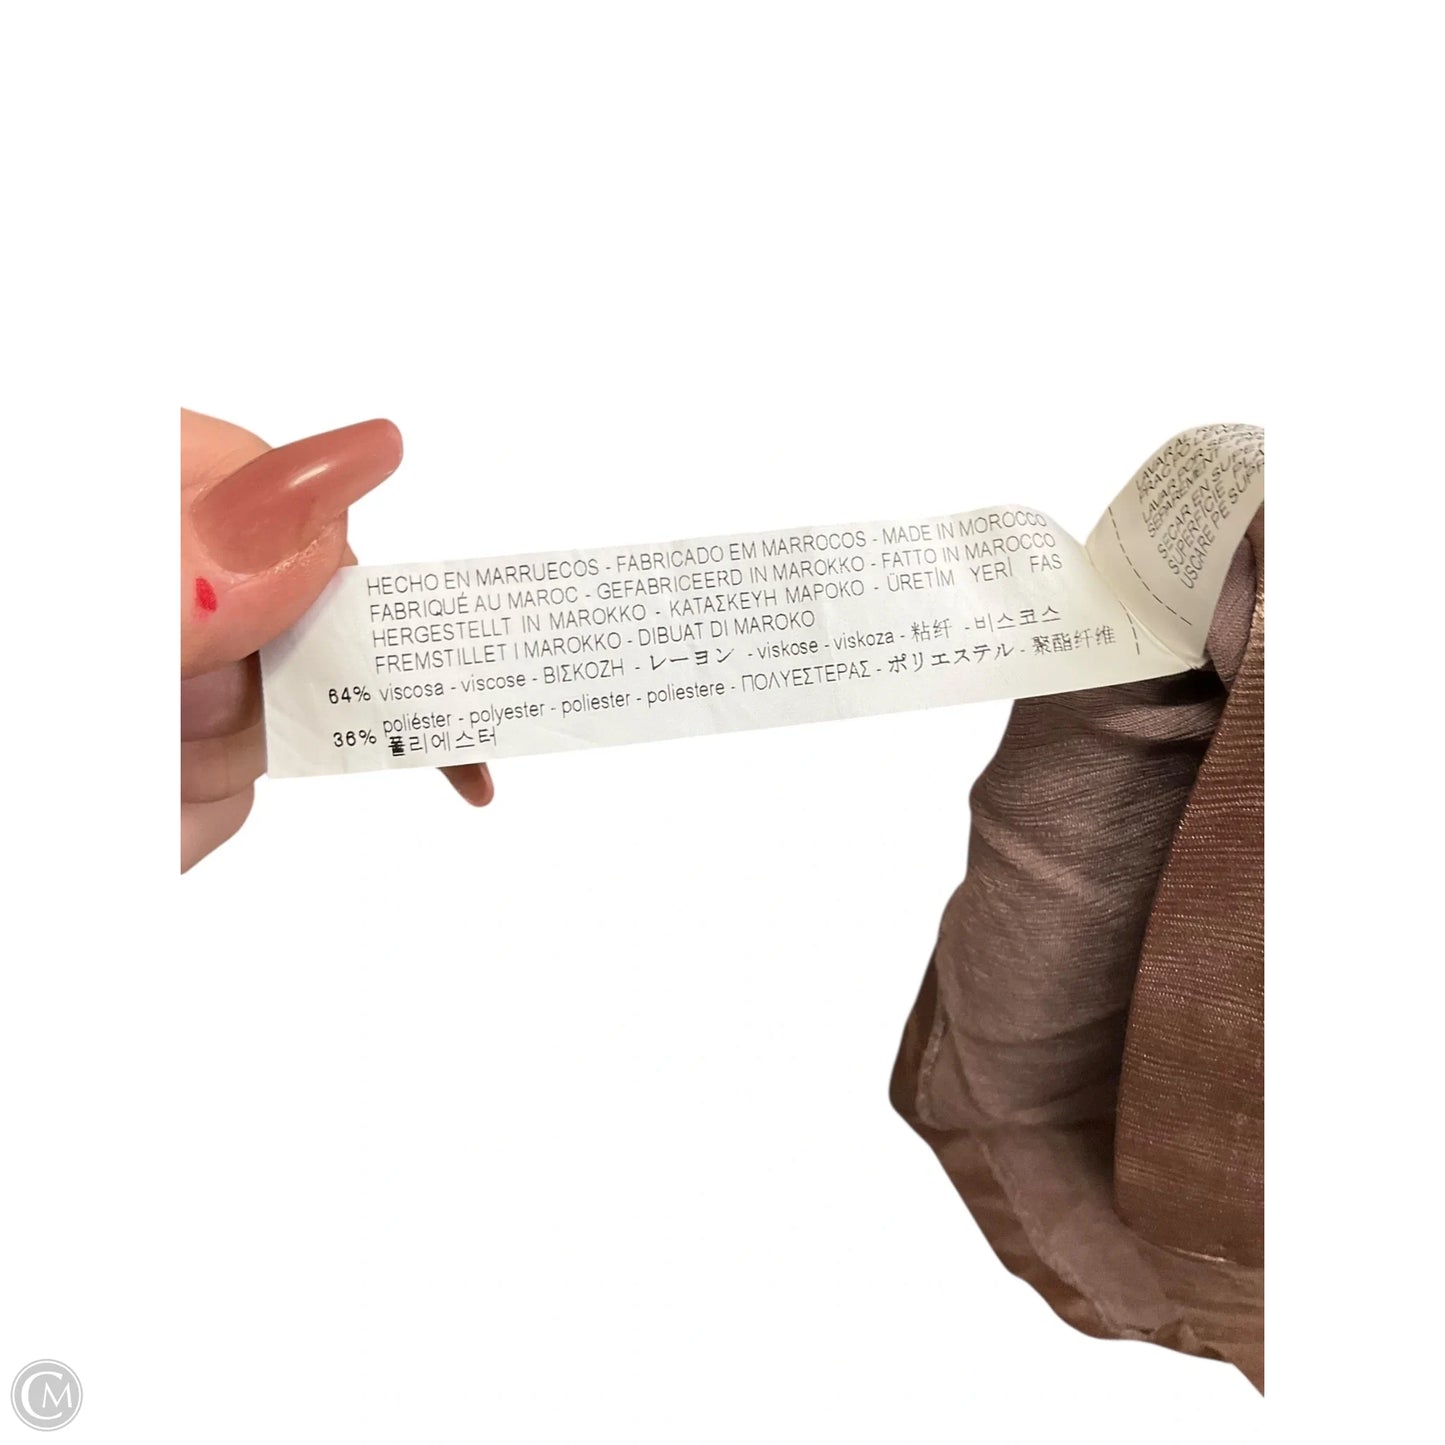 HECHO EN MARRUECOS - FABRICADO EM MARROCOS - MADE IN MOROCCO
FABRIQUÉ AU MAROC - GEFABRICEERD IN MAROKKO - FATTO IN MAROCCO
HERGESTELLT IN MAROKKO - ΚΑΤΑΣΚΕΥΗ ΜΑΡΟΚΟ - ÜRETİM YERİ FAS
FREMSTILLET I MAROKKO - DIBUAT DI MAROKO
64% viscosa - viscose - ΒΙΣΚΟΖΗ - レーヨン - viskose - viskoza - 粘纤 - 비스코스
36% poliéster - polyester - poliester - poliestere - ΠΟΛΥΕΣΤΕΡΑΣ - ポリエステル - 聚酯纤维
폴리에스터
LAVAR AL
LAVAR POR
SECAR EN
SUPERFICIE
CM